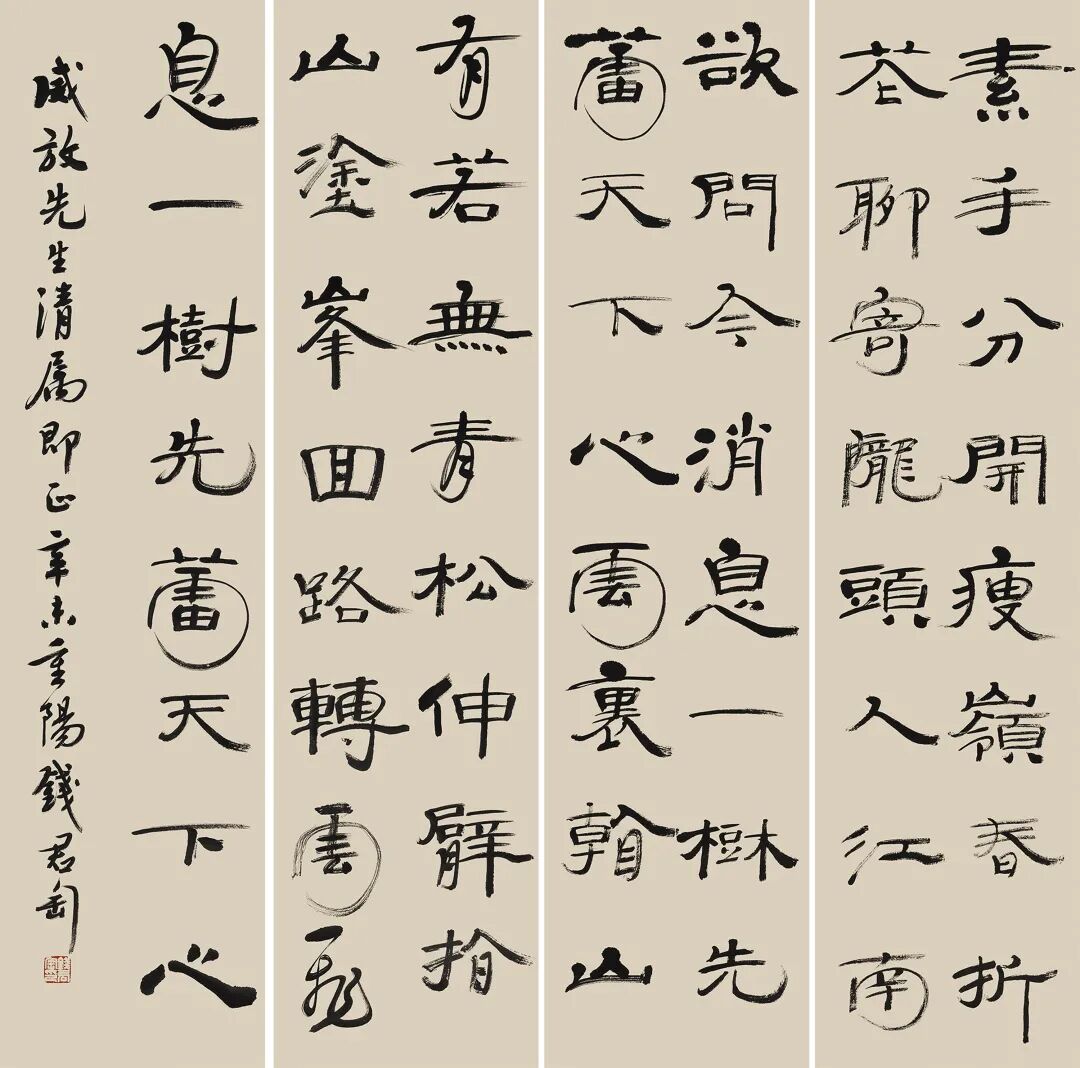 素手分開瘦嶺春折
花聊寄隴頭人江南
欲問今消息一樹先
蓄天下心雲裏看山
有若無青松伸臂指
山塗峯回路轉雲飛
息一樹先蓄天下心
放先生清属即正辛未重陽錢君匋